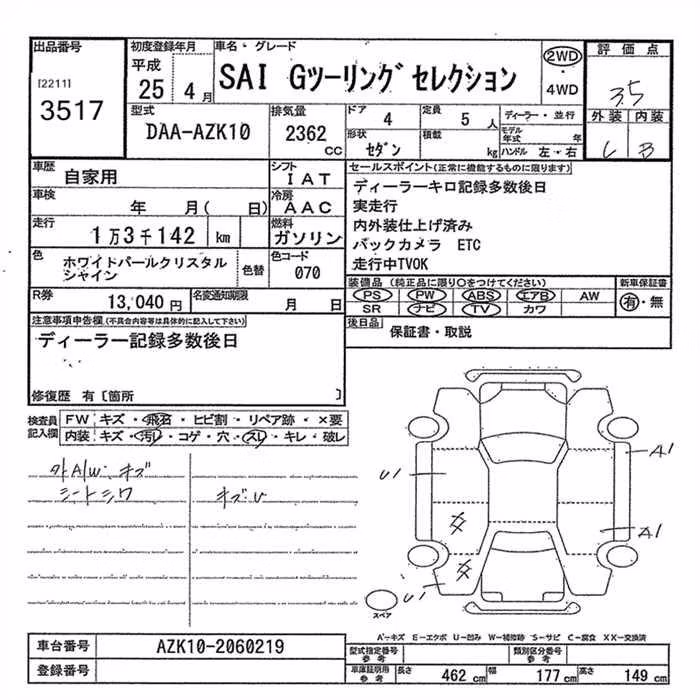 出品番号
[2211]
3517
初度登録年月
平成
25 4月
車名・グレード
SAI Gツーリングセレクション
2WD
・
4WD
評価点
3.5
外装 内装
C B
型式
DAA-AZK10
排気量
2362 CC
ドア 4
定員 5 人
形状 セダン
積載 kg
ディーラー・並行
モデル年式 年
ハンドル 左・右
車歴 自家用
シフト IAT
車検 年 月( 日)
冷房 AAC
走行 1万3千142 km
燃料 ガソリン
色 ホワイトパールクリスタルシャイン
色替
色コード 070
R券 13,040 円
名変通知期限 月 日
セールスポイント(正常に機能するものに限ります)
ディーラーキロ記録多数後日
実走行
内外装仕上げ済み
バックカメラ ETC
走行中TVOK
装備品(純正品に限り○をつけてください) 新車保証書
PS PW ABS エアB AW 有・無
SR ナビ TV カワ
後日品 保証書・取説
注意事項申告欄(不具合内容等は具体的に記入して下さい)
ディーラー記録多数後日
修復歴 有〔箇所 〕
検査員記入欄
FW キズ・飛石・ヒビ割・リペア跡・×要
内装 キズ・汚レ・コゲ・穴・スレ・キレ・破レ
外A/W・キズ
シートシワ キズU
U1
A1
A1
U1
スペア
A-キズ E-エクボ U-凹み W-補修跡 S-サビ C-腐食 XX-交換済
車台番号 AZK10-2060219
登録番号
型式指定番号 参考
類別区分番号 参考
車庫証明用 参考
長さ 462 cm 幅 177 cm 高さ 149 cm